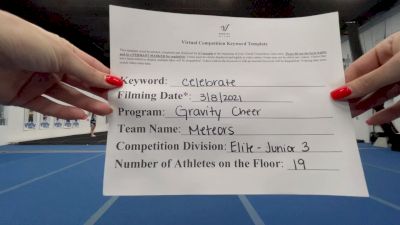 Virtual Competition Keyword Template
Keyword: celebrate
Filming Date*: 3/8/2021
Program: Gravity Cheer
Team Name: Meteors
Competition Division: Elite - Junior 3
Number of Athletes on the Floor: 19